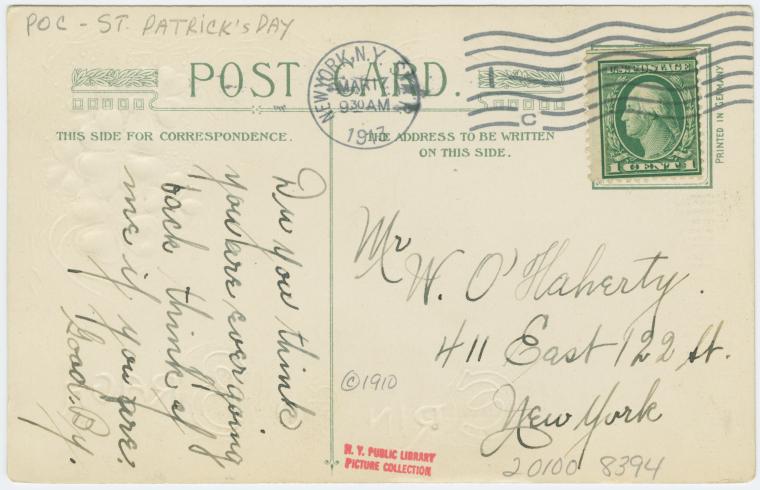 POC - ST. PATRICK'S DAY
POST CARD.
NEW YORK, N.Y.
MAR 17
9 30 AM
1917
1
C
U.S. POSTAGE
1 CENT 1
PRINTED IN GERMANY
THIS SIDE FOR CORRESPONDENCE.
THE ADDRESS TO BE WRITTEN
ON THIS SIDE.
Du you think
you are ever going
back think of
me if you are.
Good. By.
Mr
W. O'Flaherty.
411 East 122 St.
New York
©1910
N. Y. PUBLIC LIBRARY
PICTURE COLLECTION
20100 8394
ERIN